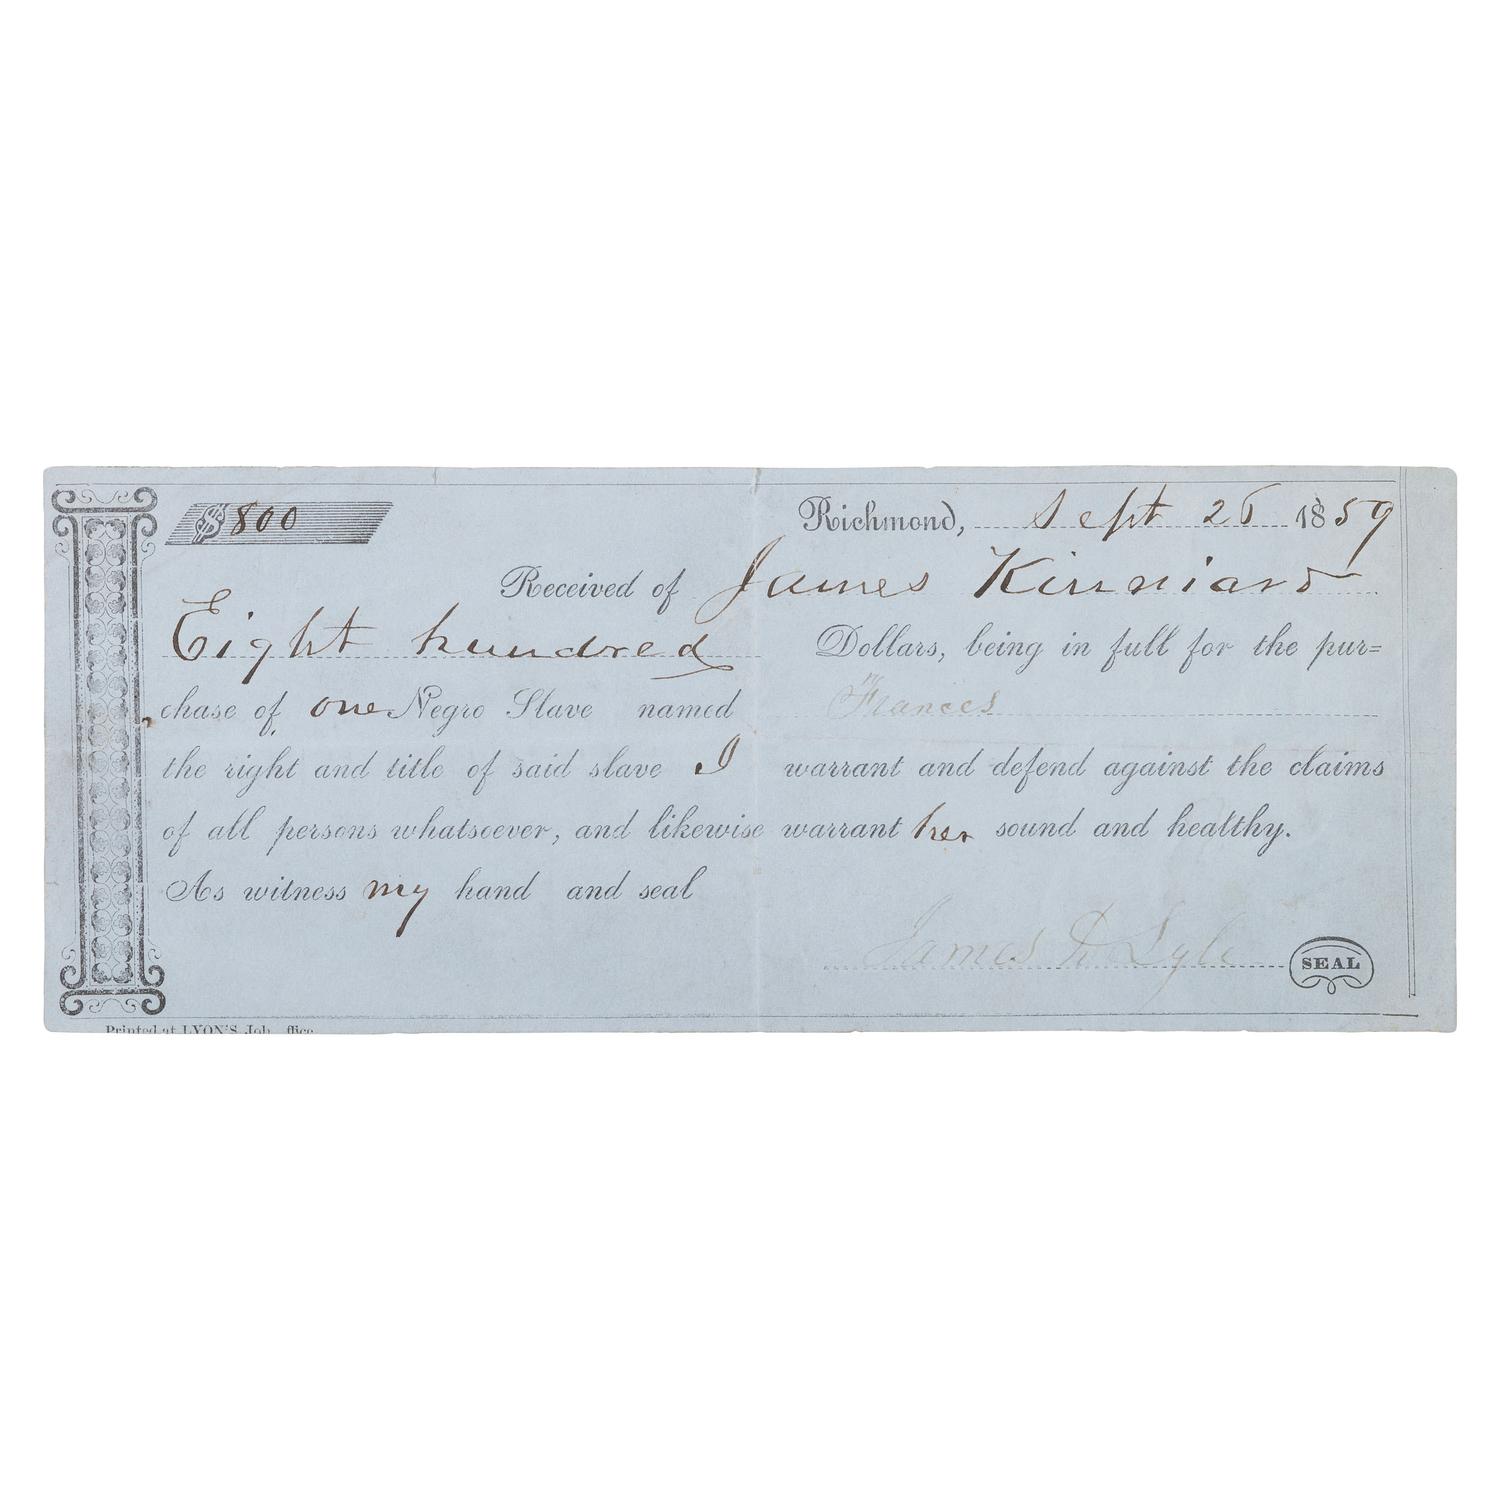 $ 800
Richmond, Sept 26 1859
Received of James Kinniard
Eight hundred Dollars, being in full for the pur=
chase of one Negro Slave named Frances
the right and title of said slave I warrant and defend against the claims
of all persons whatsoever, and likewise warrant her sound and healthy.
As witness my hand and seal
James D Lyle SEAL
Printed at LYON'S Job ffice